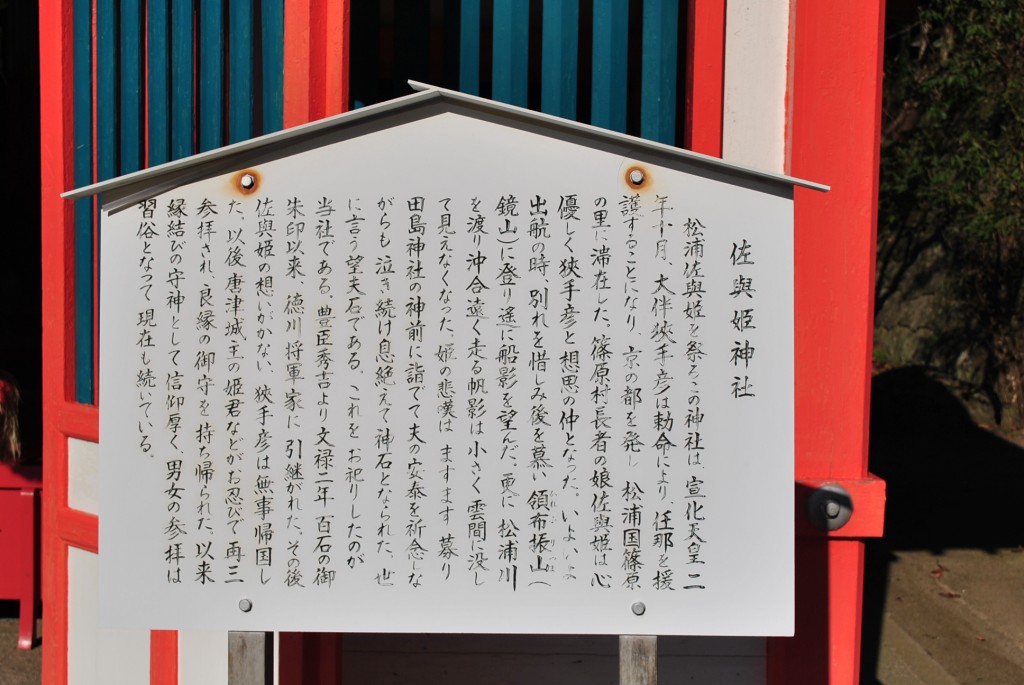 佐與姫神社
松浦佐與姫を祭るこの神社は、宣化天皇二
年十月、大伴狹手彦は勅命により、任那を援
護することになり、京の都を発し 松浦国篠原
の里に滞在した。篠原村長者の娘佐與姫は心
優しく狹手彦と想思の仲となった。いよいよ
出航の時、別れを惜しみ後を慕い 領布振山(
鏡山)に登り遥に船影を望んだ。更に 松浦川
を渡り沖合遠く走る帆影は小さく 雲間に没し
て見えなくなった。姫の悲嘆は ますます 募り
田島神社の神前に詣でて夫の安泰を祈念しな
がらも泣き続け息絶えて神石となられた。世
に言う望夫石である。これを お祀りしたのが
当社である。豊臣秀吉より 文禄二年 百石の御
朱印以来、徳川将軍家に 引継がれた。その後
佐與姫の想いがかない、狹手彦は無事帰国し
た。以後 唐津城主の姫君などがお忍びで 再三
参拝され、良縁の御守を持ち帰られた。以来
縁結びの守神として信仰厚く、男女の参拝は
習俗となって現在も続いている。